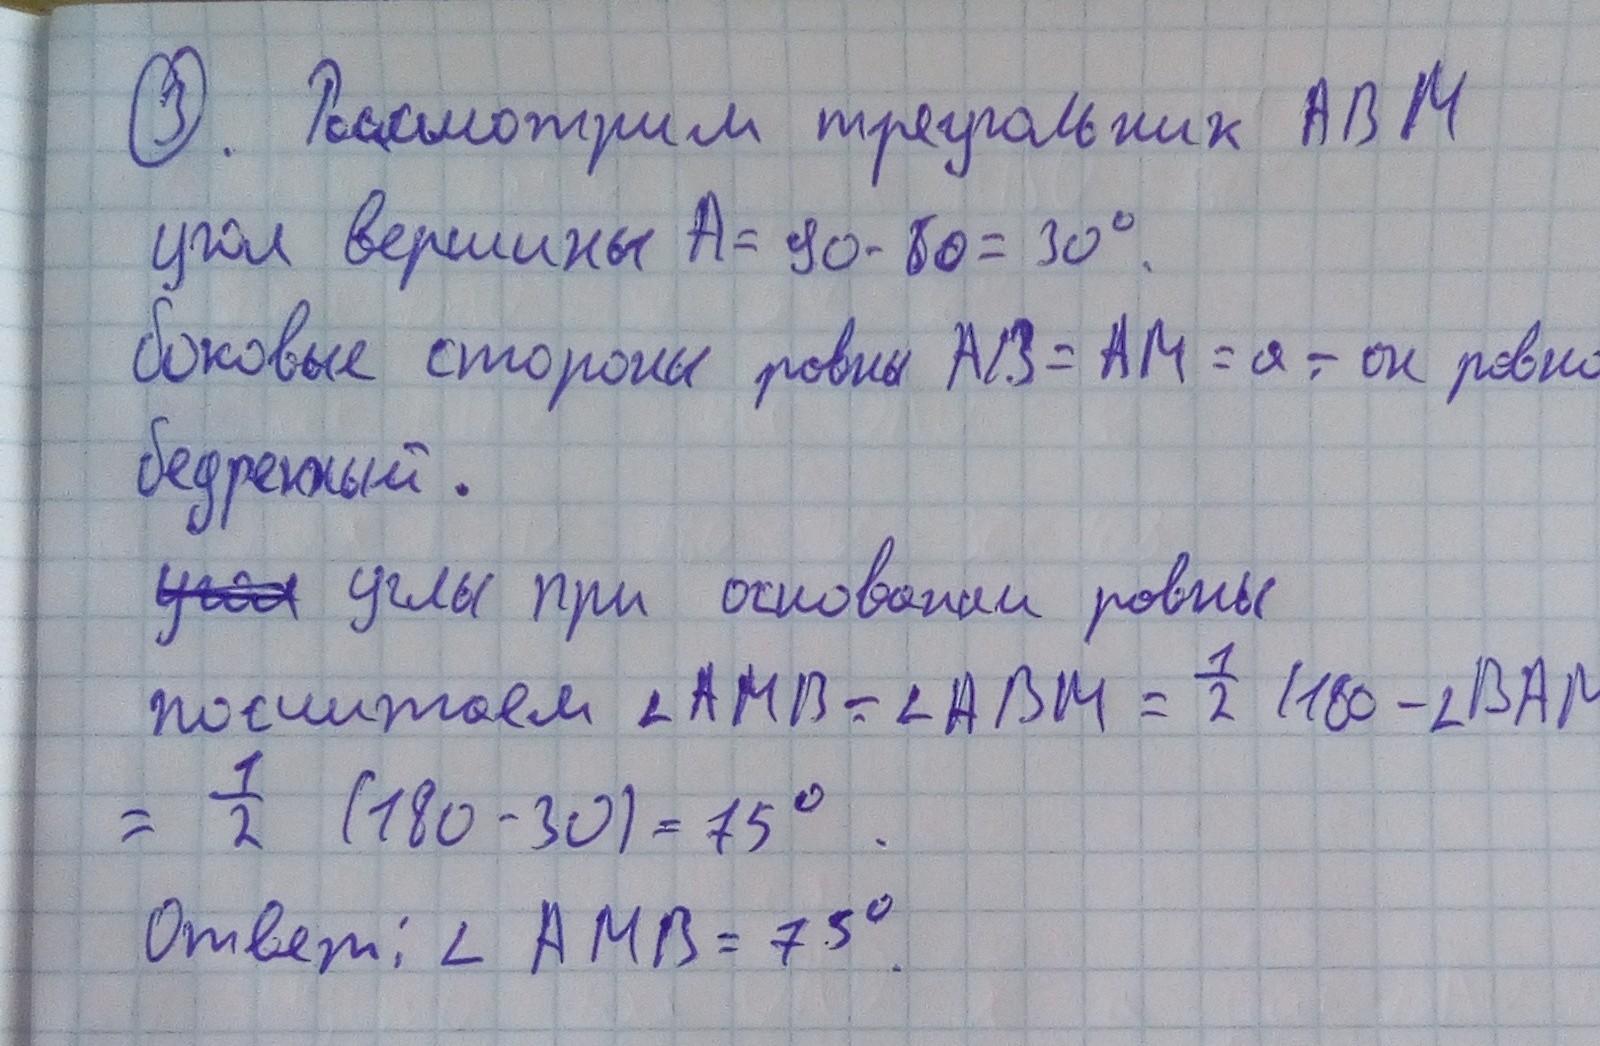 3. Рассмотрим треугольник ABM
угол вершины A = 90 - 60 = 30°.
боковые стороны равны AB = AM = a - он равно
бедренный.
угол углы при основании равны
посчитаем ∠AMB = ∠ABM = 1/2 (180 - ∠BAM
= 1/2 (180 - 30) = 75°.
Ответ: ∠ AMB = 75°.